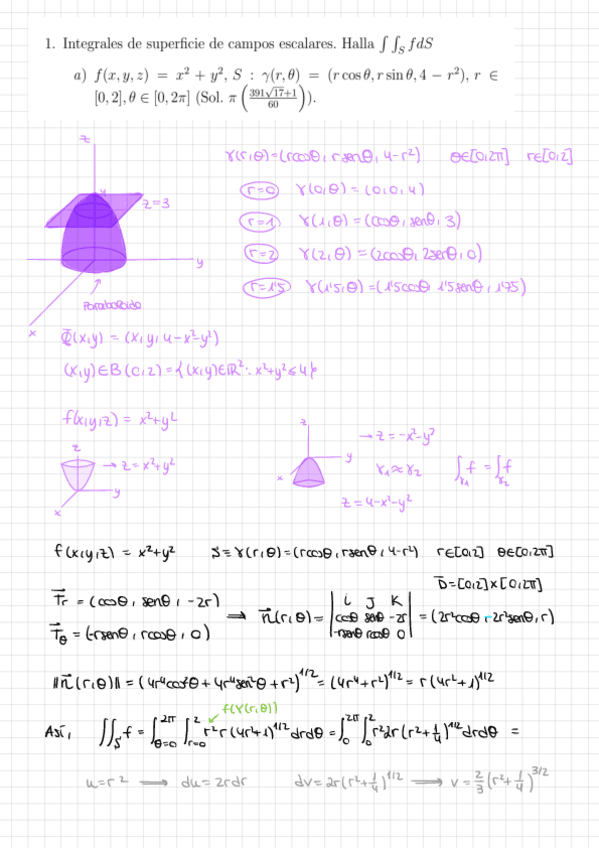 1. Integrales de superficie de campos escalares. Halla ∫∫_S fdS
a) f(x, y, z) = x² + y², S : γ(r, θ) = (r cos θ, r sin θ, 4 − r²), r ∈
[0, 2], θ ∈ [0, 2π] (Sol. π((391√17+1)/60)).
z
4
z=3
y
x
Paraboloide
γ(r,θ)=(rcosθ, rsenθ, 4-r²) θ∈[0,2π] r∈[0,2]
r=0 γ(0,θ) = (0,0,4)
r=1 γ(1,θ) = (cosθ, senθ, 3)
r=2 γ(2,θ) = (2cosθ, 2senθ, 0)
r=1'5 γ(1'5,θ) = (1'5cosθ 1'5senθ, 1'75)
Φ(x,y) = (x, y, 4-x²-y²)
(x,y)∈B(0,2) = {(x,y)∈ℝ²: x²+y²≤4}
f(x,y,z) = x²+y²
z
→ z=x²+y²
y
x
z
y
x
→ z=-x²-y²
γ₁≈γ₂ ∫_γ₁ f = ∫_γ₂ f
z=4-x²-y²
f(x,y,z) = x²+y² S=γ(r,θ)=(rcosθ, rsenθ, 4-r²) r∈[0,2] θ∈[0,2π]
D=[0,2]×[0,2π]
T⃗r = (cosθ, senθ, -2r)
T⃗θ = (-rsenθ, rcosθ, 0)
⟹ n⃗(r,θ) = | i J K |
| cosθ senθ -2r | = (2r²cosθ, -2r²senθ, r)
| -rsenθ rcosθ 0 |
‖n⃗(r,θ)‖ = (4r⁴cos²θ + 4r⁴sen²θ + r²)^1/2 = (4r⁴+r²)^1/2 = r(4r²+1)^1/2
f(γ(r,θ))
Así, ∬_S f = ∫_{θ=0}^{2π} ∫_{r=0}^{2} r² r(4r²+1)^1/2 drdθ = ∫_0^{2π} ∫_0^2 r² 2r(r²+1/4)^1/2 drdθ =
u=r² ⟶ du=2rdr dv=2r(r²+1/4)^1/2 ⟶ v=2/3(r²+1/4)^3/2